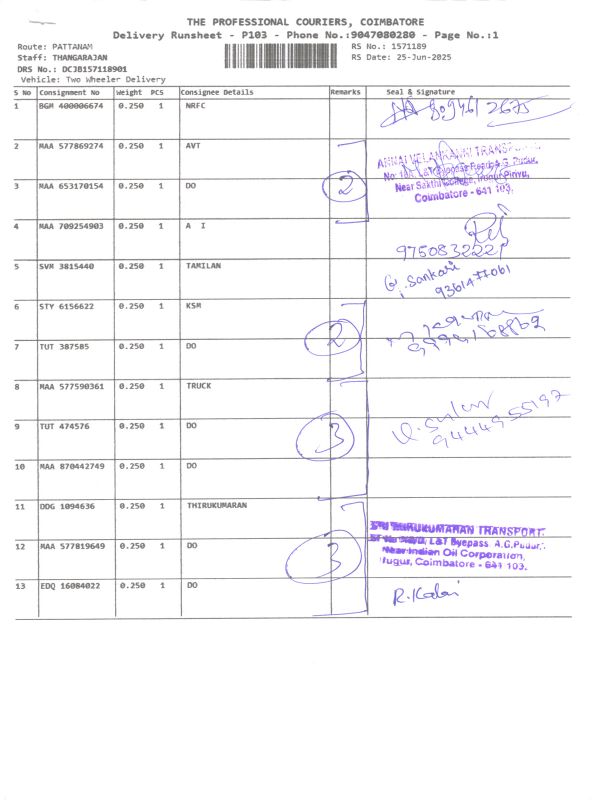 THE PROFESSIONAL COURIERS, COIMBATORE
Delivery Runsheet - P103 - Phone No.:9047080280 - Page No.:1
Route: PATTANAM RS No.: 1571189
Staff: THANGARAJAN RS Date: 25-Jun-2025
DRS No.: DCJB157118901
Vehicle: Two Wheeler Delivery
S No Consignment No Weight PCS Consignee Details Remarks Seal & Signature
1 BGM 400006674 0.250 1 NRFC 809461 2675
2 MAA 577869274 0.250 1 AVT
ANNAI VELANKANNI TRANSPORT
L&T Byepass Road, A.G. Pudur,
3 MAA 653170154 0.250 1 DO 2 Near Sakthi College, Irugur Pirivu,
Coimbatore - 641 103.
4 MAA 709254903 0.250 1 A I
9750832221
5 SVM 3815440 0.250 1 TAMILAN G. Sankari
9361477061
6 STY 6156622 0.250 1 KSM
7 TUT 387585 0.250 1 DO 2
8 MAA 577590361 0.250 1 TRUCK
9 TUT 474576 0.250 1 DO 3 9444955197
10 MAA 870442749 0.250 1 DO
11 DDG 1094636 0.250 1 THIRUKUMARAN
SRI THIRUKUMARAN TRANSPORT
12 MAA 577819649 0.250 1 DO 3 L&T Byepass, A.G.Pudur,
Near Indian Oil Corporation,
Irugur, Coimbatore - 641 103.
13 EDQ 16084022 0.250 1 DO R. Kalai